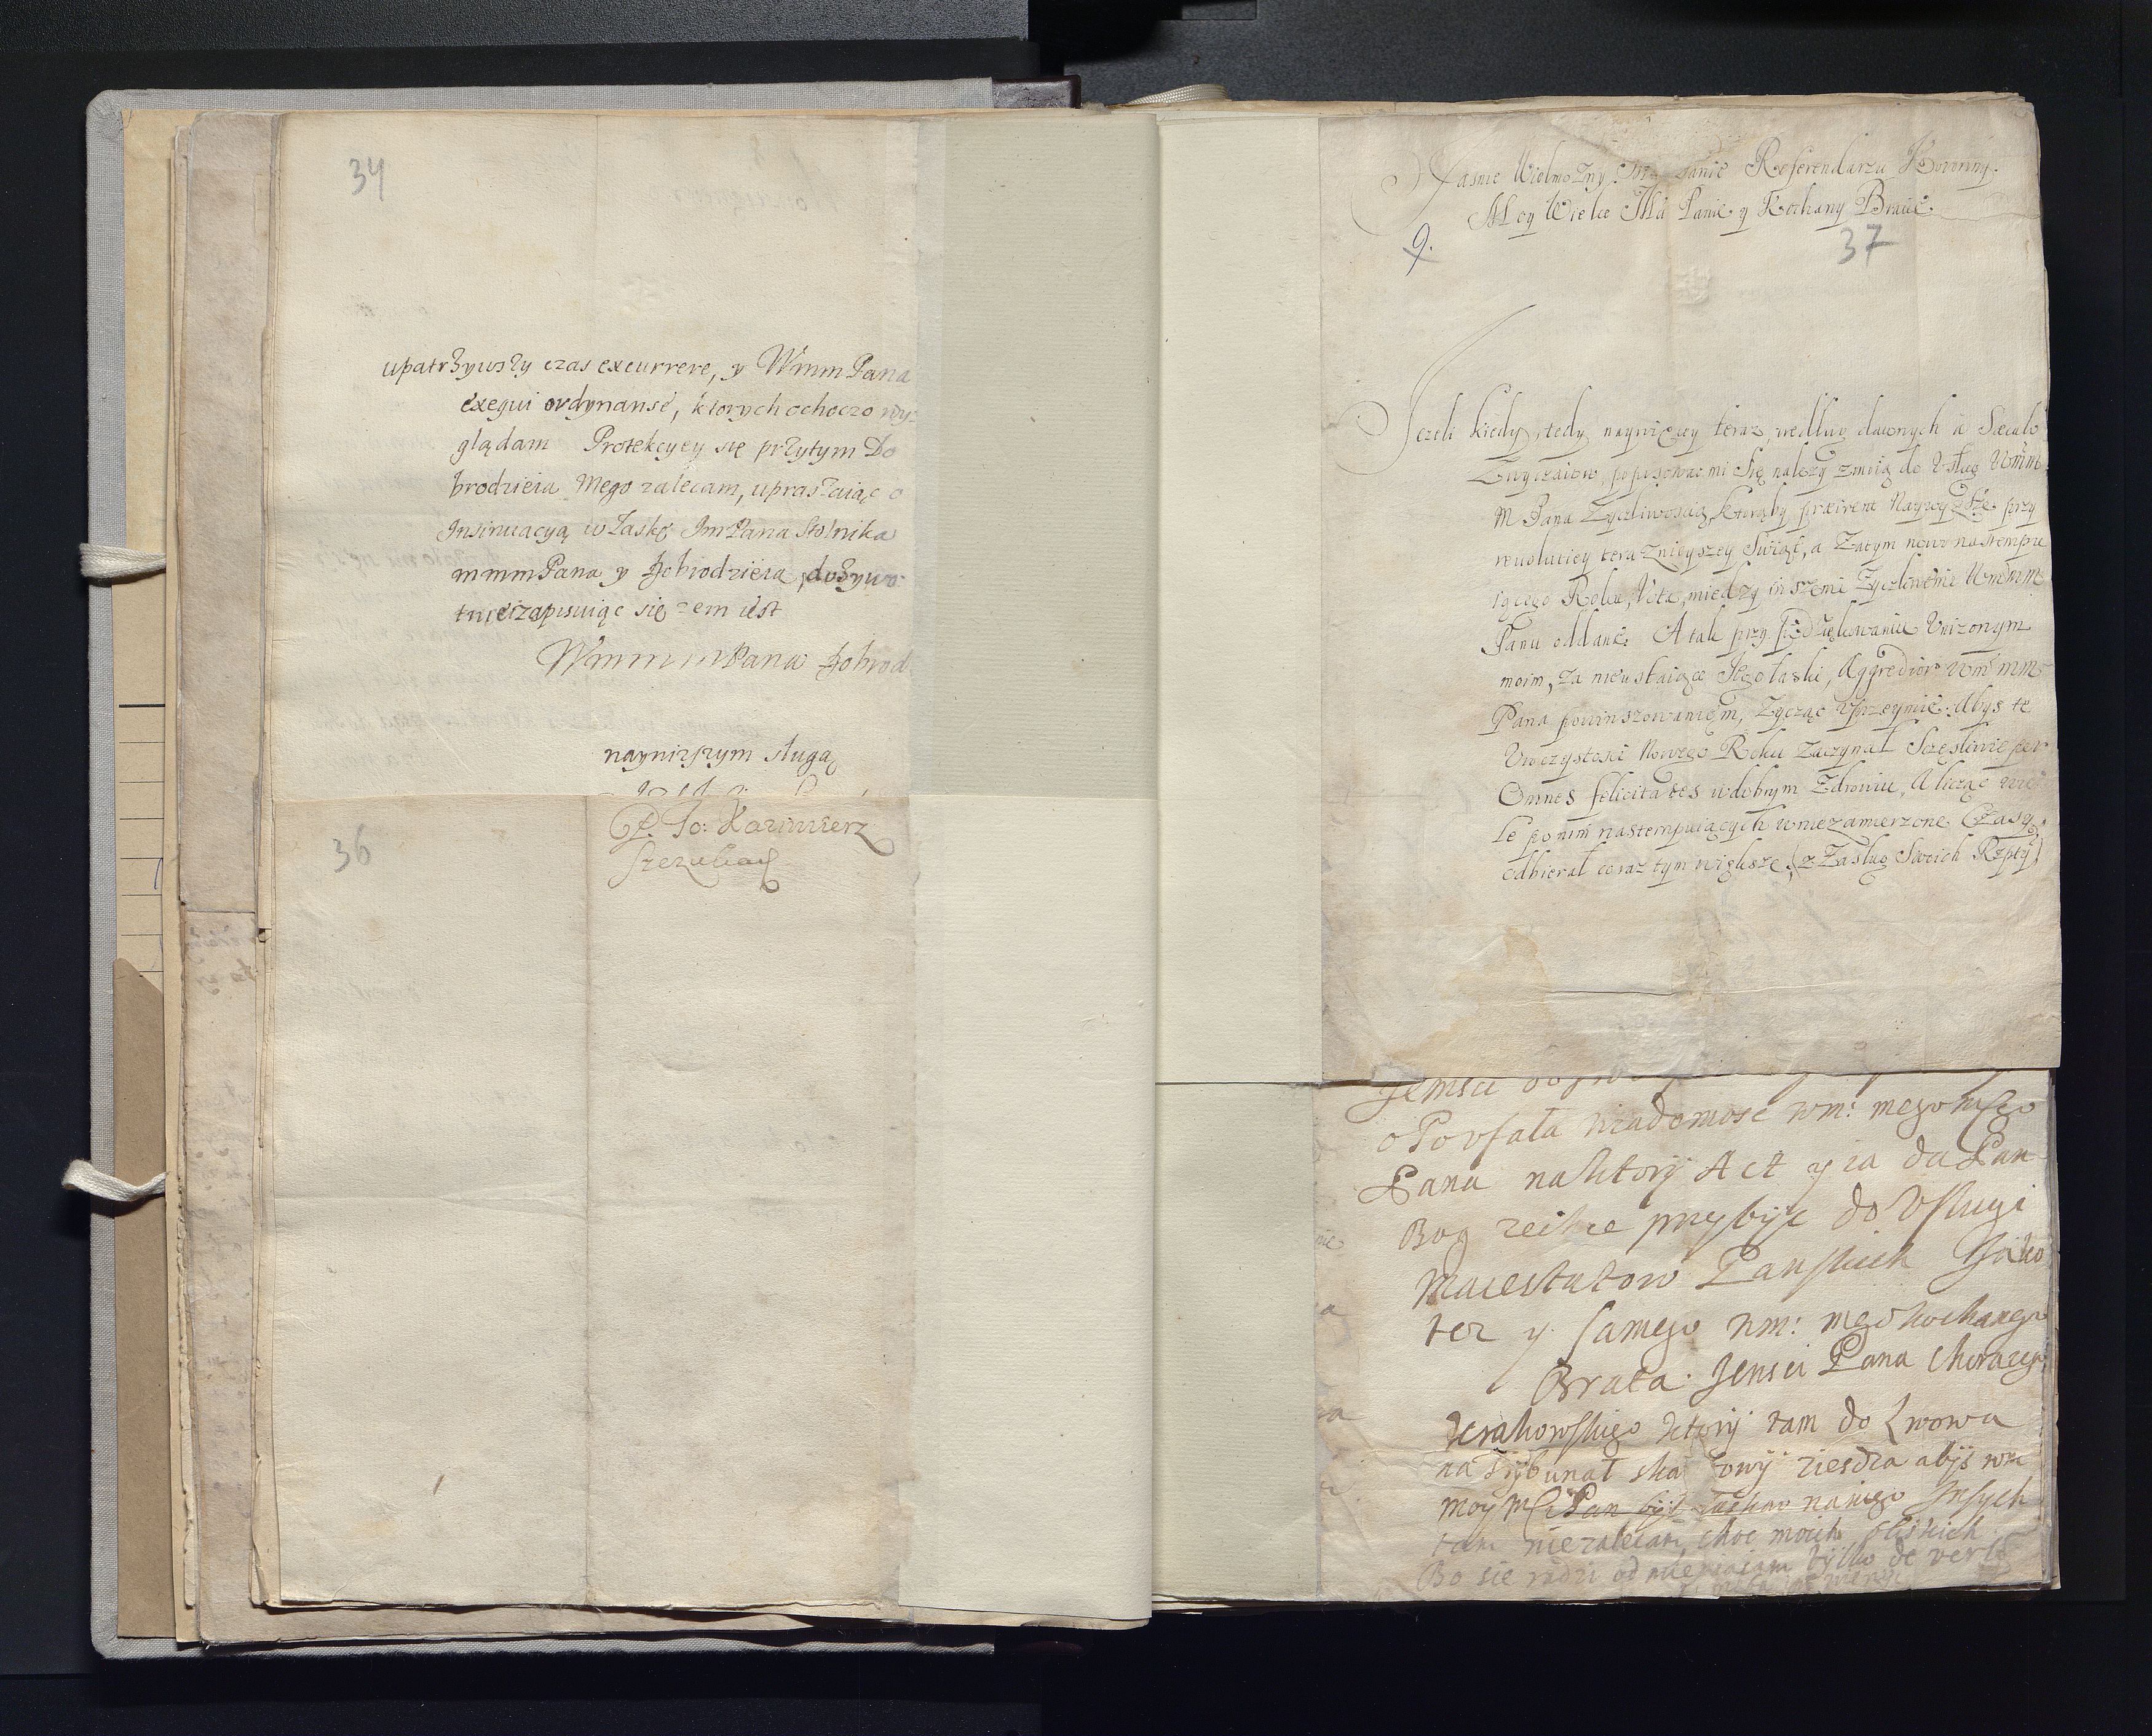 34
upatrzywszy czas excurrere, y Wmm Pana
exequi ordynanse, ktorych ochoczo wy-
glądam Protekcyey się przytym Do
brodzieia Mego zalecam, upraszaiąc o
Insinuacyą w Łaskę Im Pana Stolnika
mmm Pana y Dobrodzieia, dożywo
tnie zapisuiąc się zem iest
Wmmm Pana Dobrod
nayniższym sługą
36
Kazimierz
37
Jasnie Wielmozny Panie Referendarzu Koronny.
Moy Wielce Mść Panie y Kochany Bracie.
9.
Jezeli kiedy, tedy naywięcey teraz, wedlug dawnych a Sæculo
Zwyczaiow, popisowac mi się nalezy zmoią do Vslug Wmm
M Pana Zyczliwoscią, ktorąby przy
rewolutiey teraznieyszey Swiąt, a Zatym nowo nastempu
iącego Roku, Vota, między inszemi Zyczliwemi Wmmm
Panu oddane. A tak przy podziękowaniu Unizonym
moim, za nieustaiące Jego łaski, Aggredior Wm mm
Pana powinszowaniem, Zycząc Uprzeymie: Abys te
Uroczystosci Nowego Roku Zaczynał Sczęsliwie per
Omnes felicitates w dobrym Zdrowiu, A licząc wie
le po nim nastempuiących w niezamierzone Czasy,
odbierał coraz tym większe, (z Zasług Swoich Rzpty)
wiadomosc wm: mego
Pana na ktory Act y ia da Pan
Bog zechce przybyc do Vslugi
Maiestatow Panskich Jako
tez y samego wm: mego kochanego
Brata. Jemsci Pana Chorązego
krakowskiego ktory tam do Lwowa
na Trybunał skarbowy ziesdza abys wm
moy Pan był łaskaw na niego Inszych
tam nie zalecam, choc moich bliskich
Bo sie radzi od tylko de verbo